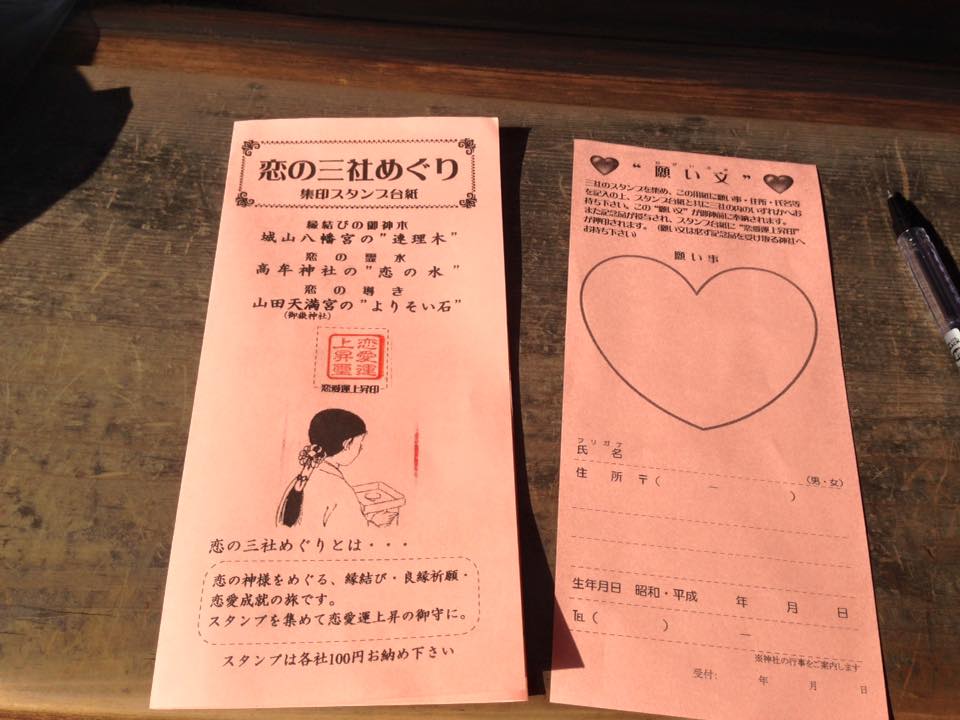 恋の三社めぐり
集印スタンプ台紙
縁結びの御神木
城山八幡宮の"連理木"
恋の霊水
高牟神社の"恋の水"
恋の導き
山田天満宮の"よりそい石"
(御嶽神社)
恋愛運
上昇璽
恋愛運上昇印
恋の三社めぐりとは・・・
恋の神様をめぐる、縁結び・良縁祈願・
恋愛成就の旅です。
スタンプを集めて恋愛運上昇の御守に。
スタンプは各社100円お納め下さい
ねがいぶみ
"願い文"
三社のスタンプを集め、この用紙に願い事・住所・氏名等
を記入の上、スタンプ台紙と共に三社の内のいずれかへお
持ち下さい。この"願い文"が御神前に奉納されます。
また記念品が授与され、スタンプ台紙に"恋愛運上昇印"
が押印されます。(願い文は必ず記念品を受け取る神社へ
お持ち下さい)
願い事
フリガナ
氏 名
(男・女)
住 所 〒( − )
生年月日 昭和・平成 年 月 日
℡( ) −
※神社の行事をご案内します
受付: 年 月 日